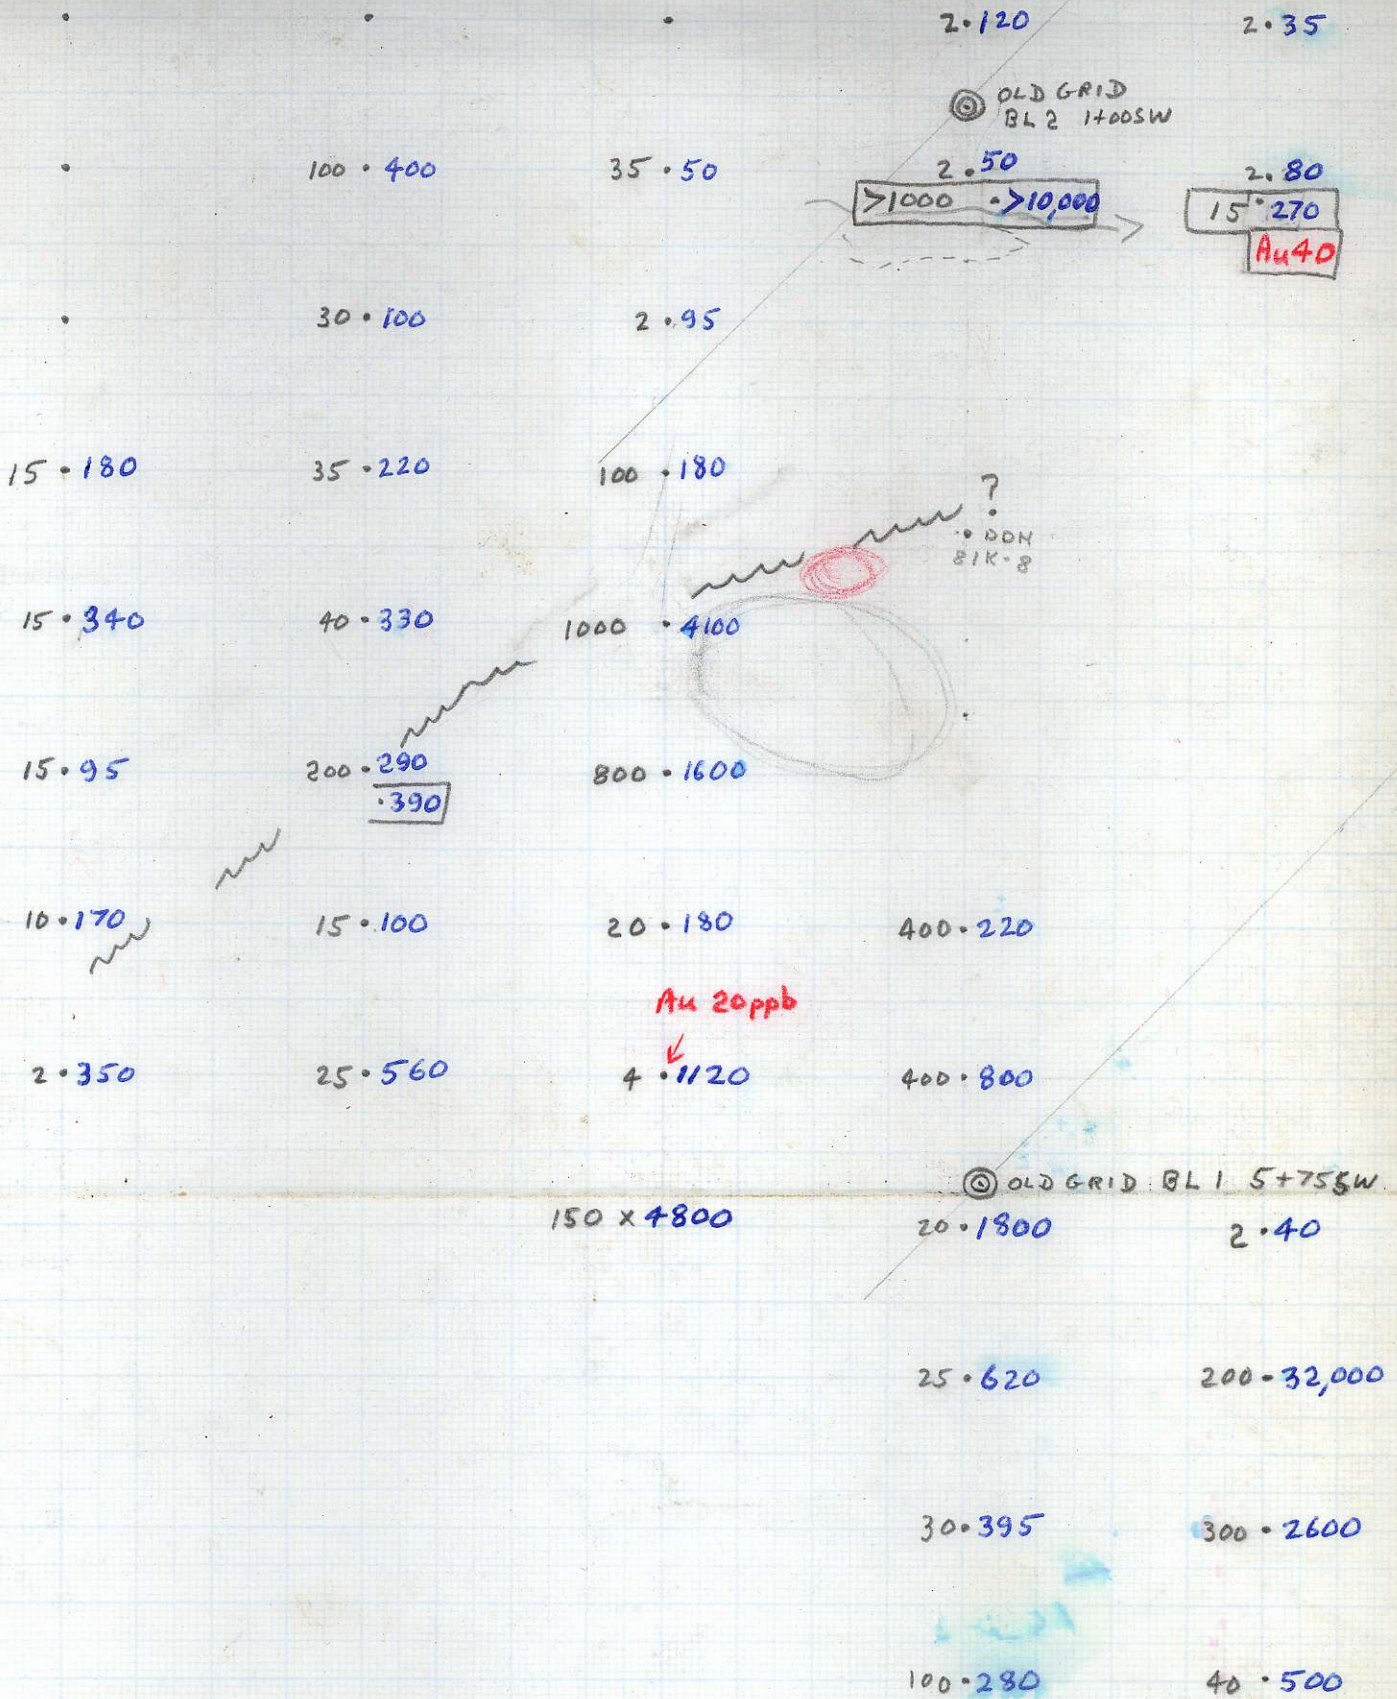 2 · 120 2 · 35
OLD GRID
BL 2 1+00SW
100 · 400 35 · 50 2 · 50 2 · 80
>1000 · >10,000 15 · 270
Au 40
30 · 100 2 · 95
15 · 180 35 · 220 100 · 180
?
· DDH
81K-8
15 · 340 40 · 330 1000 · 4100
15 · 95 200 · 290 800 · 1600
· 390
10 · 170 15 · 100 20 · 180 400 · 220
Au 20ppb
2 · 350 25 · 560 4 · 1120 400 · 800
OLD GRID BL 1 5+75SW
150 x 4800 20 · 1800 2 · 40
25 · 620 200 - 32,000
30 · 395 300 · 2600
100 · 280 40 · 500